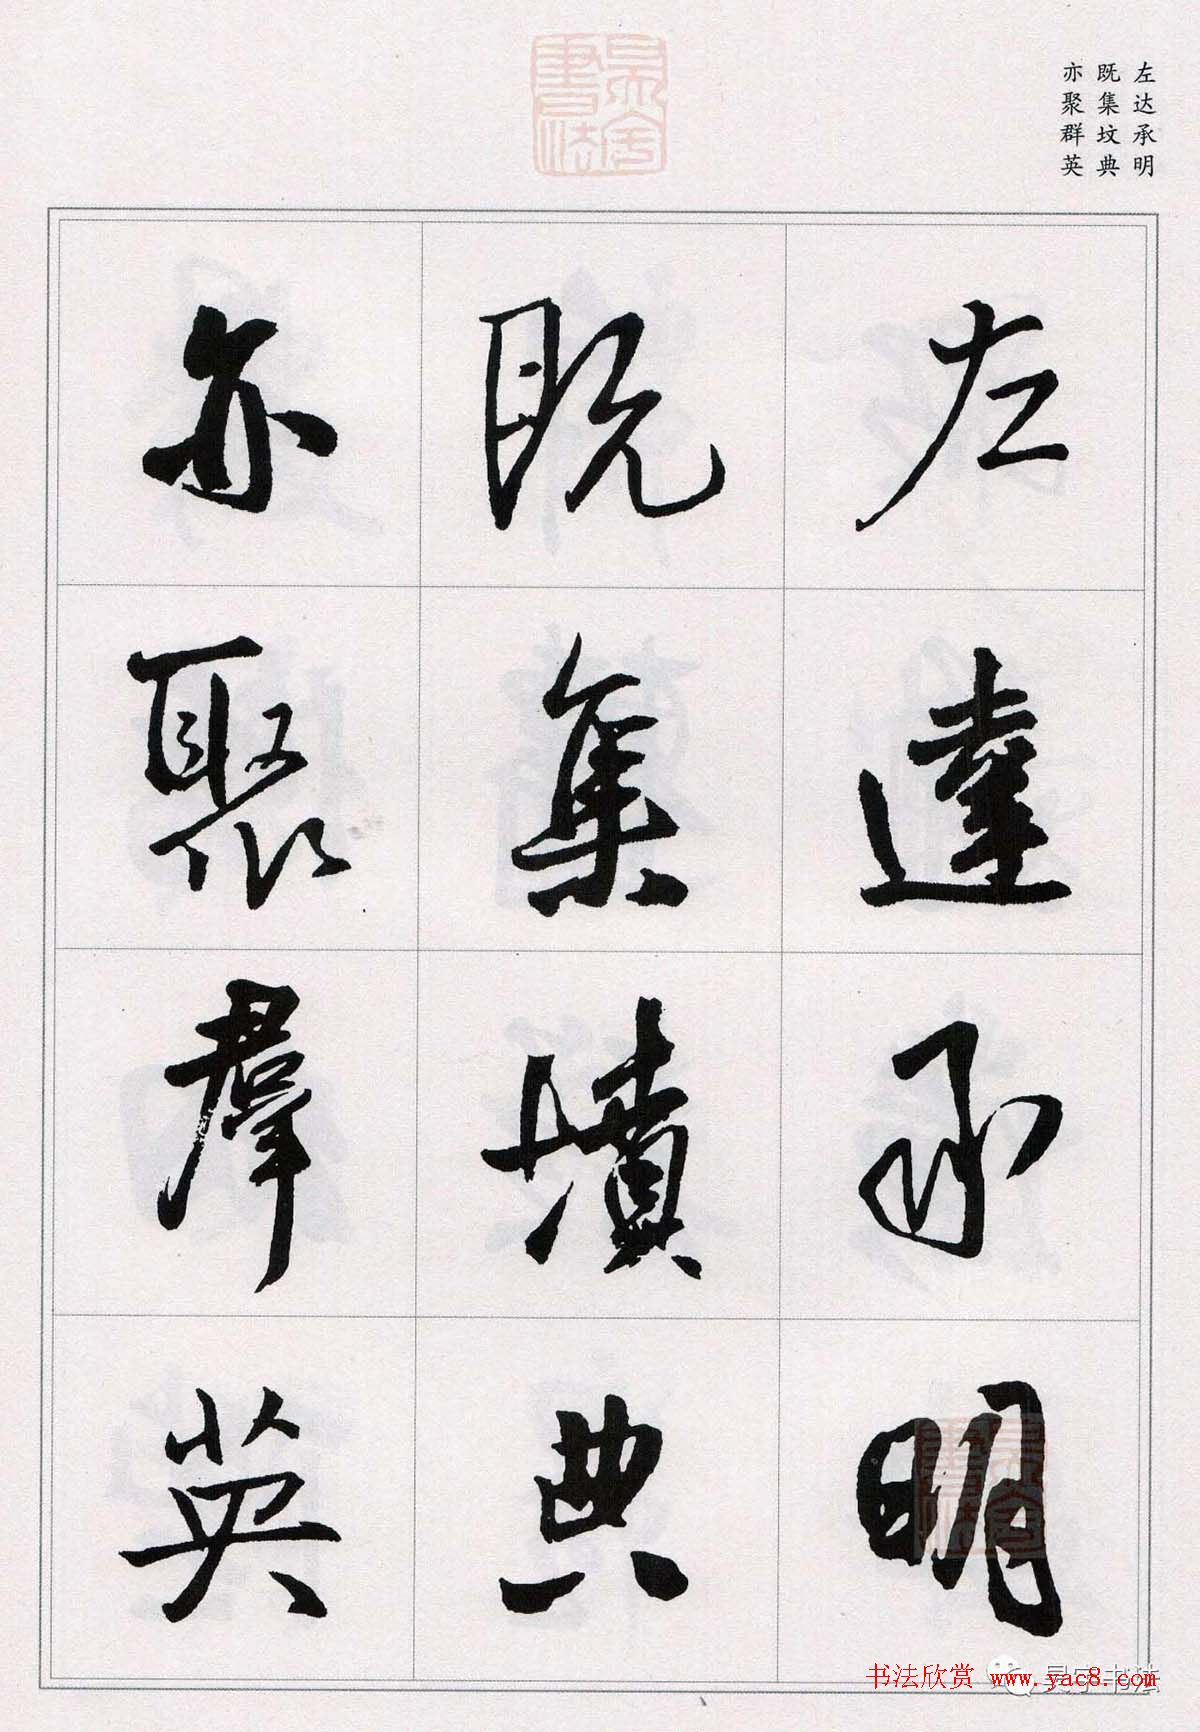 左达承明
既集坟典
亦聚群英
左達承明
既集墳典
亦聚羣英
书法欣赏 www.yac8.com